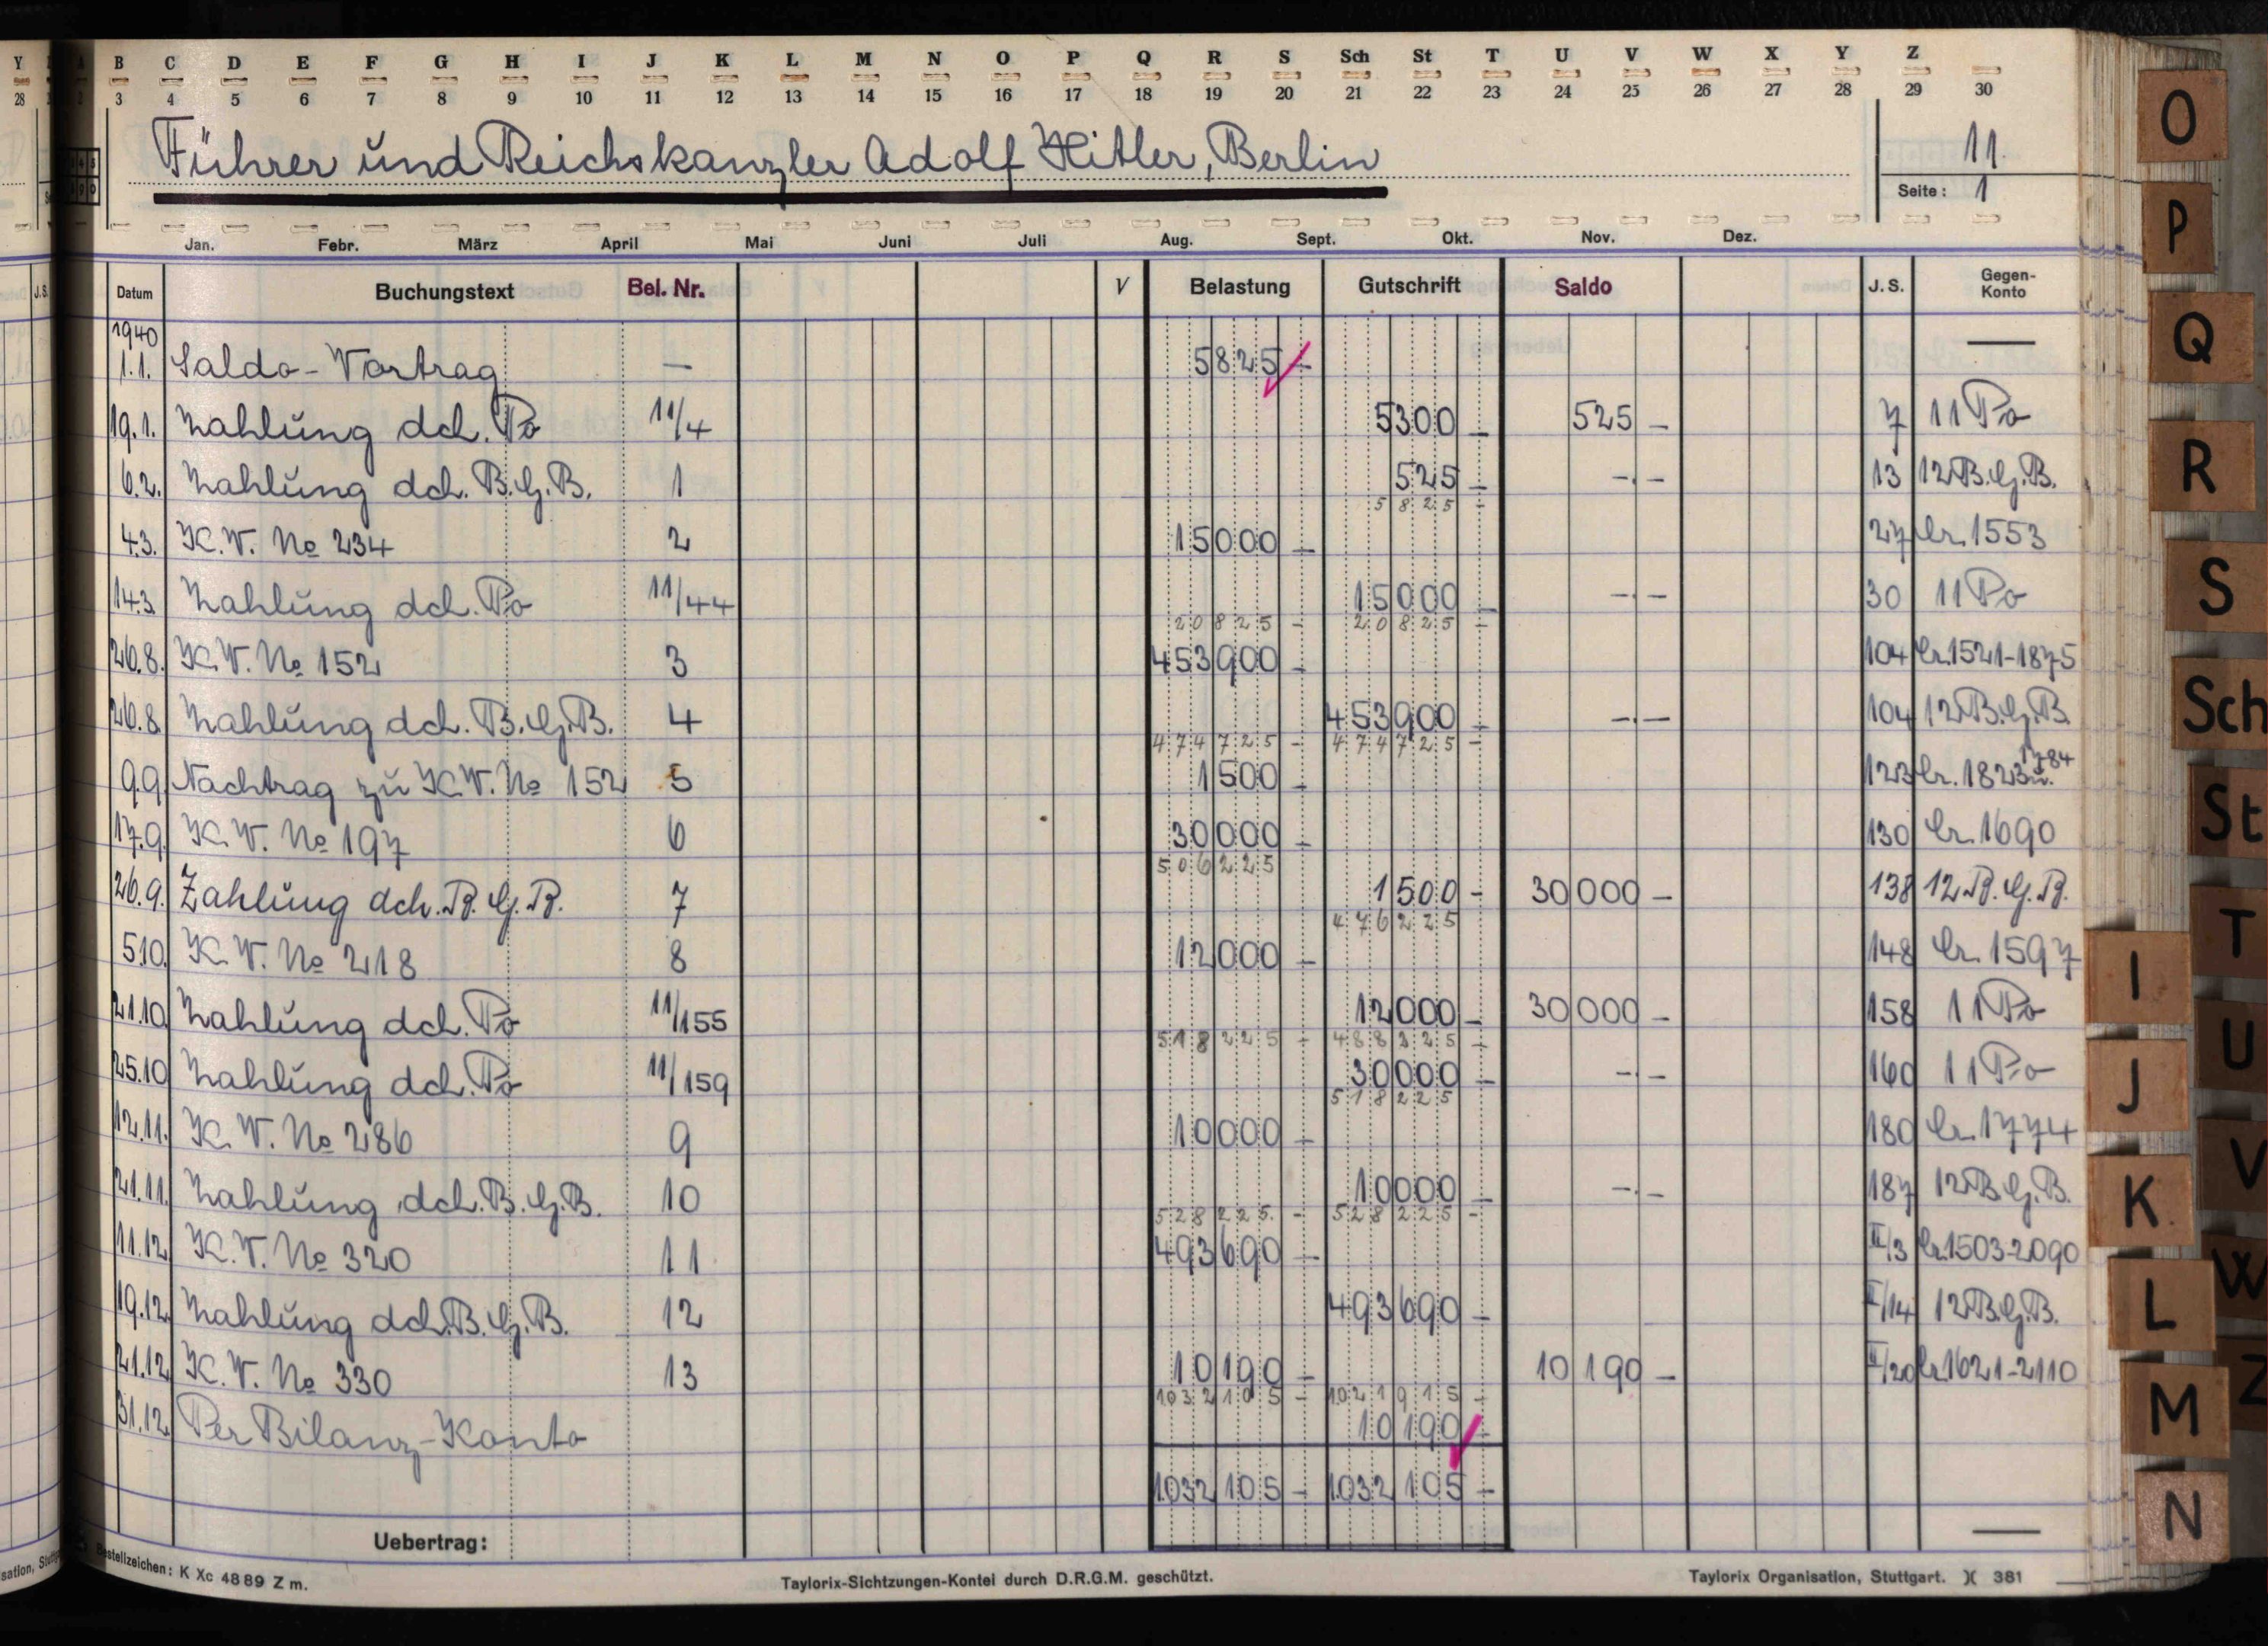 Y B C D E F G H I J K L M N O P Q R S Sch St T U V W X Y Z
28 3 4 5 6 7 8 9 10 11 12 13 14 15 16 17 18 19 20 21 22 23 24 25 26 27 28 29 30
Führer und Reichskanzler Adolf Hitler, Berlin 11.
Seite: 1
Jan. Febr. März April Mai Juni Juli Aug. Sept. Okt. Nov. Dez.
J.S. Datum Buchungstext Bel. Nr. V Belastung Gutschrift Saldo J. S. Gegen-
Konto
1940
1.1. Saldo-Vortrag — 5825 — —
19.1. Zahlung dch. Po 11/4 5300 — 525 — 7 11 Po
6.2. Zahlung dch. B.G.B. 1 525 — -.- 13 12 B.G.B.
5825 -
4.3. K.W. No 234 2 15000 — 27 Cr. 1553
14.3. Zahlung dch. Po 11/44 15000 — -.- 30 11 Po
20825 - 20825 -
26.8. K.W. No 152 3 453900 — 104 Cr. 1521-1875
26.8. Zahlung dch. B.G.B. 4 453900 — -.- 104 12 B.G.B.
474725 - 474725 -
9.9. Nachtrag zu K.W. No 152 5 1500 — 123 Cr. 1823 u. 1784
17.9. K.W. No 197 6 30000 — 130 Cr. 1690
506225
26.9. Zahlung dch. B.G.B. 7 1500 - 30000 — 138 12 B.G.B.
476225
5.10. K.W. No 218 8 12000 — 148 Cr. 1597
21.10. Zahlung dch. Po 11/155 12000 — 30000 — 158 11 Po
518225 - 488225 -
25.10. Zahlung dch. Po 11/159 30000 — -.- 160 11 Po
518225
12.11. K.W. No 286 9 10000 — 180 Cr. 1774
21.11. Zahlung dch. B.G.B. 10 10000 — -.- 187 12 B.G.B.
528225. - 528225 -
11.12. K.W. No 320 11 493690 — II/3 Cr. 1503-2090
19.12. Zahlung dch. B.G.B. 12 493690 — II/14 12 B.G.B.
21.12. K.W. No 330 13 10190 — 10190 — II/20 Cr. 1621-2110
1032105 - 1021915 -
31.12. Per Bilanz-Konto 10190 -
1032105 - 1032105 -
Uebertrag: —
Bestellzeichen: K Xc 4889 Z m. Taylorix-Sichtzungen-Kontei durch D.R.G.M. geschützt. Taylorix Organisation, Stuttgart. 381
O
P
Q
R
S
Sch
St
T
U
V
W
Z
I
J
K
L
M
N